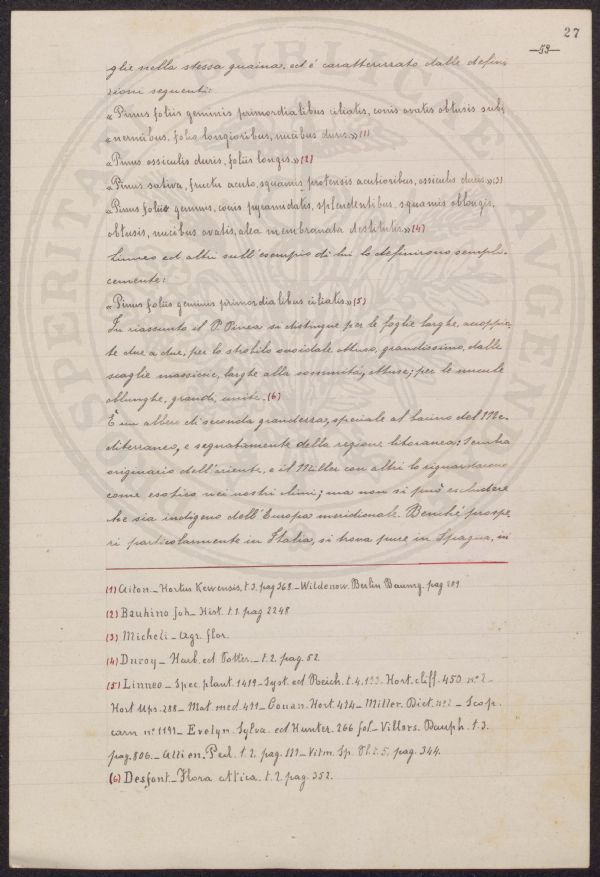 27
—53—
glie nella stessa guaina, ed é caratterizzato dalle defini
zioni seguenti:
«Pinus foliis geminis primordialibus ciliatis, conis ovatis obtusis sub
«nermibus, folio longioribus, nucibus duris.»(1)
«Pinus ossiculis duris, foliis longis.»(2)
«Pinus sativa, fructu acuto, squamis protensis acutioribus, ossiculis duris.»(3)
«Pinus foliis geminis, conis pyramidatis, splendentibus, squamis oblongis,
obtusis, nucibus ovatis, alea membranata destitutis»(4)
Linneo ed altri sull'esempio di lui lo definirono sempli-
cemente:
«Pinus foliis geminis primordialibus ciliatis»(5)
In riassunto il P. Pinea si distingue per le foglie larghe, accoppia
te due a due, per lo strobilo ovoidale ottuso, grandissimo, dalle
scaglie massiccie, larghe alla sommitá, ottuse; per le nucule
oblunghe, grandi, unite.(6)
É un albero di seconda grandezza, speciale al bacino del Me-
diterraneo, e segnatamente della regione litoranea: Sembra
originario dell'oriente, e il Miller con altri lo riguardarono
come esotico nei nostri climi; ma non si può escludere
che sia indigeno dell'Europa meridionale. Benché prospe
ri particolarmente in Italia, si trova pure in Spagna, in
(1) Aiton._ Hortus Kewensis, t.3. pag 368._ Wildenow. Berlin Baumz. pag 209
(2) Bauhino Joh_ Hist. t.1. pag 2248
(3) Micheli_ Agr. flor.
(4) Duroy_ Harb. ed Potter._ t.2. pag. 52.
(5) Linneo_ Spec. plant. 1419_ Syst. ed Reich. t.4. Hort. cliff. 450 n°2_
Hort Ups. 288_ Mat. med. 491_ Gouan. Hort. 494_ Miller. Dict. n°2_ Scop.
carn n°1191_ Evelyn. Sylva. ed Hunter. 266 fol_ Villars. Dauph. t.3.
pag. 806._ Allien. Ped. t.2. pag. 177_ Vitm. Sp. Pl. t.5. pag. 344.
(6) Desfont._ Flora Attica. t.2. pag. 352.